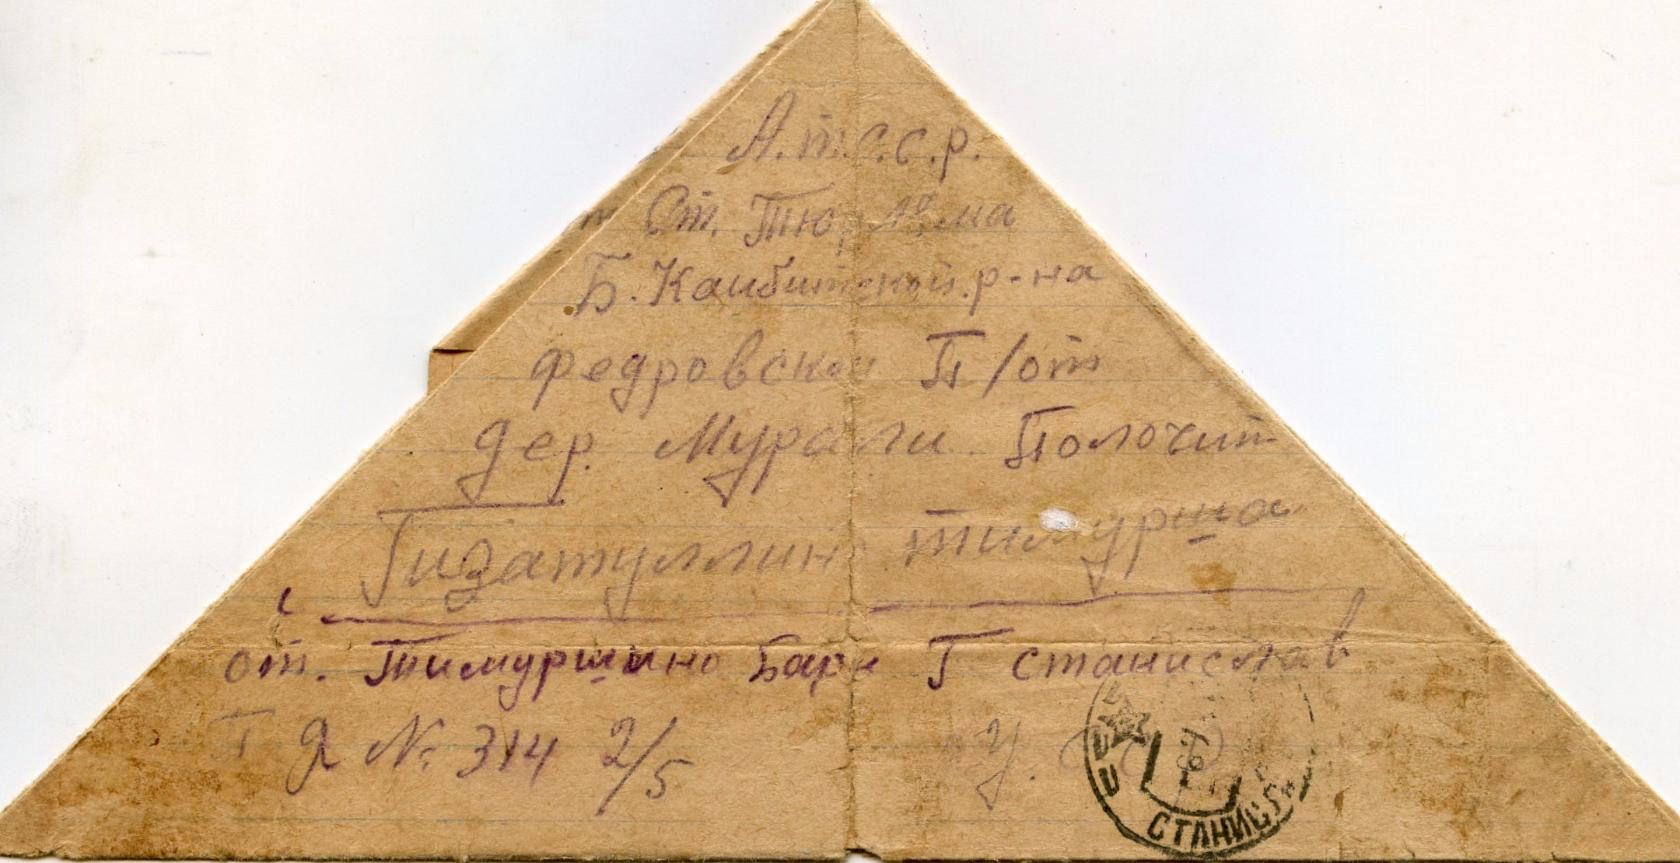 А.т.с.с.р.
Ст. Тюрлема
Б. Каибитской. р-на
федровской П/от
дер. Мурали Полочит
Гизатуллин тимурша
от. Тимуршино Бари Г станислав
П Я №. 314 2/5 У.
СТАНИСЛ